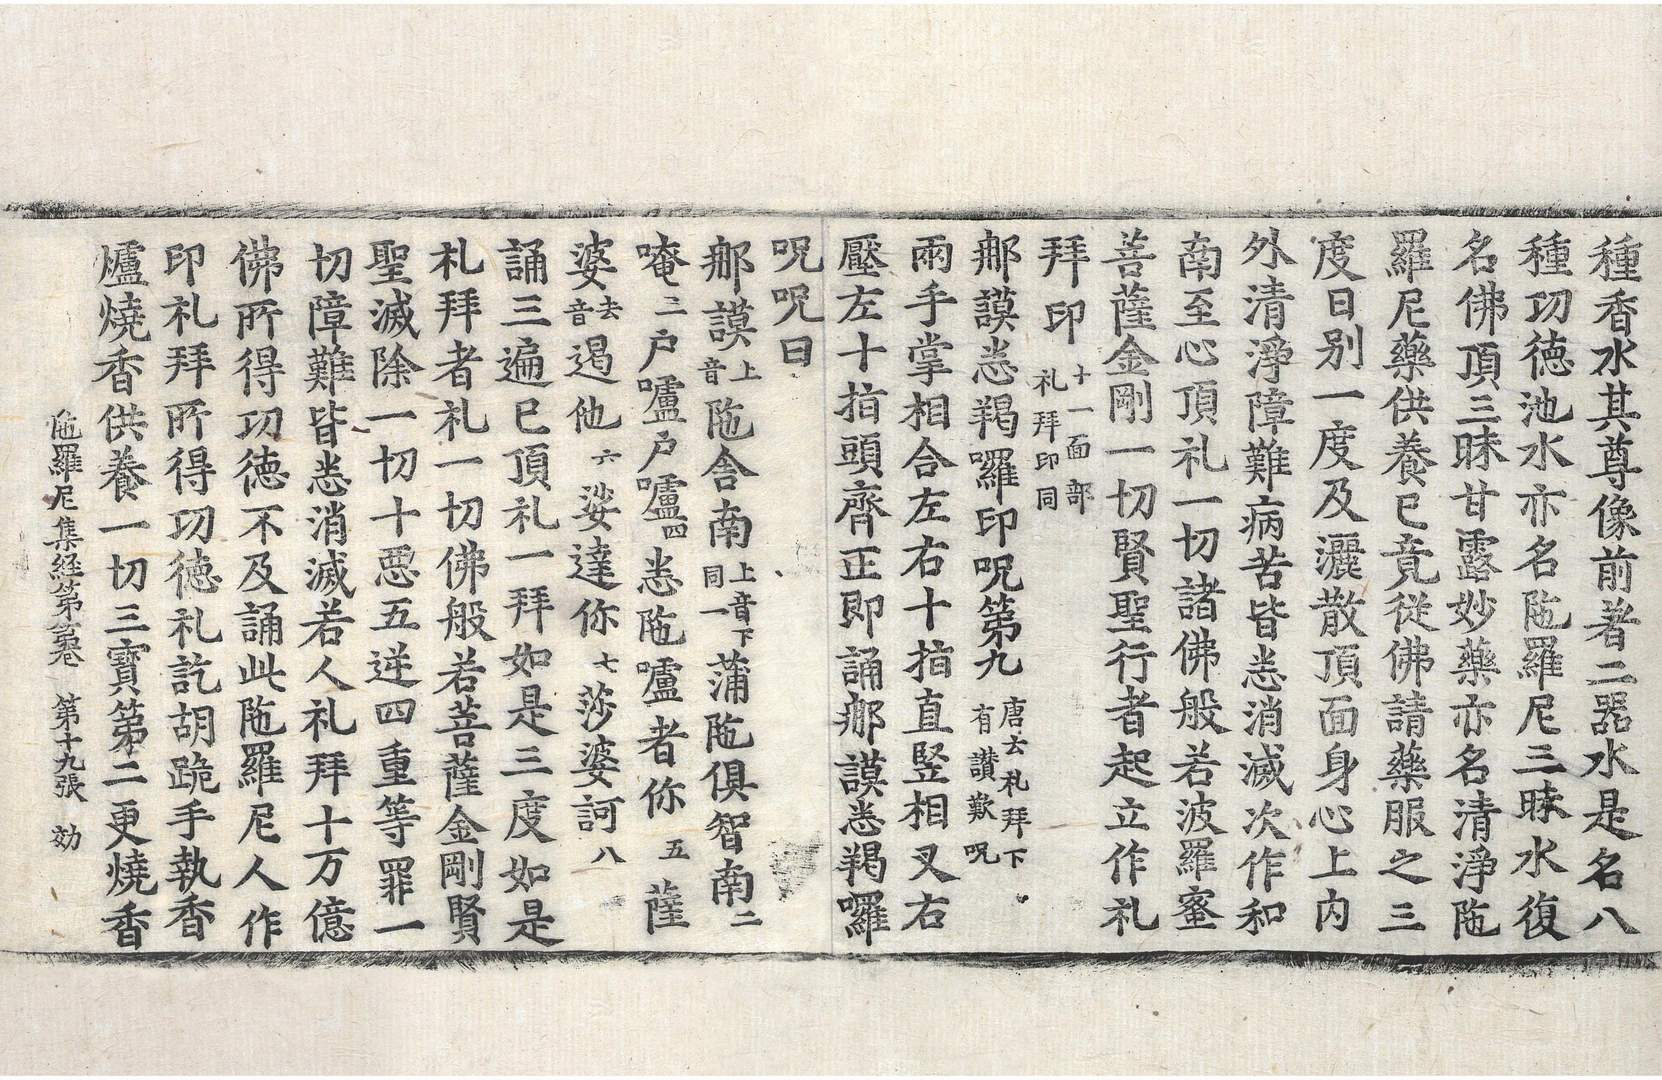 種香水其尊像前著二器水是名八
種㓛徳池水亦名陁羅尼三昧水復
名佛頂三昧甘露妙藥亦名清淨陁
羅尼藥供養已竟從佛請藥服之三
度日別一度及灑散頂面身心上内
外清淨障難病苦皆悉消滅次作和
南至心頂礼一切諸佛般若波羅蜜
菩薩金剛一切賢聖行者起立作礼
拜印十一面部礼拜印同
那謨悉羯囉印呪第九唐云札拜下有讃歎呪
兩手掌相合左右十指直竪相叉右
壓左十指頭齊正即誦那謨悉羯囉
呪呪曰
那謨上音陁舍南上音下同一蒲陁俱智南二
唵三户嚧户嚧四悉陁嚧者你五薩
婆去音遏他六娑達你七莎婆訶八
誦三遍已頂礼一拜如是三度如是
礼拜者礼一切佛般若菩薩金剛賢
聖滅除一切十惡五逆四重等罪一
切障難皆悉消滅若人礼拜十万億
佛所得㓛徳不及誦此陁羅尼人作
印礼拜所得㓛徳礼訖胡跪手執香
爐燒香供養一切三寶第二更燒香
陁羅尼集經第一卷 第十九張 効